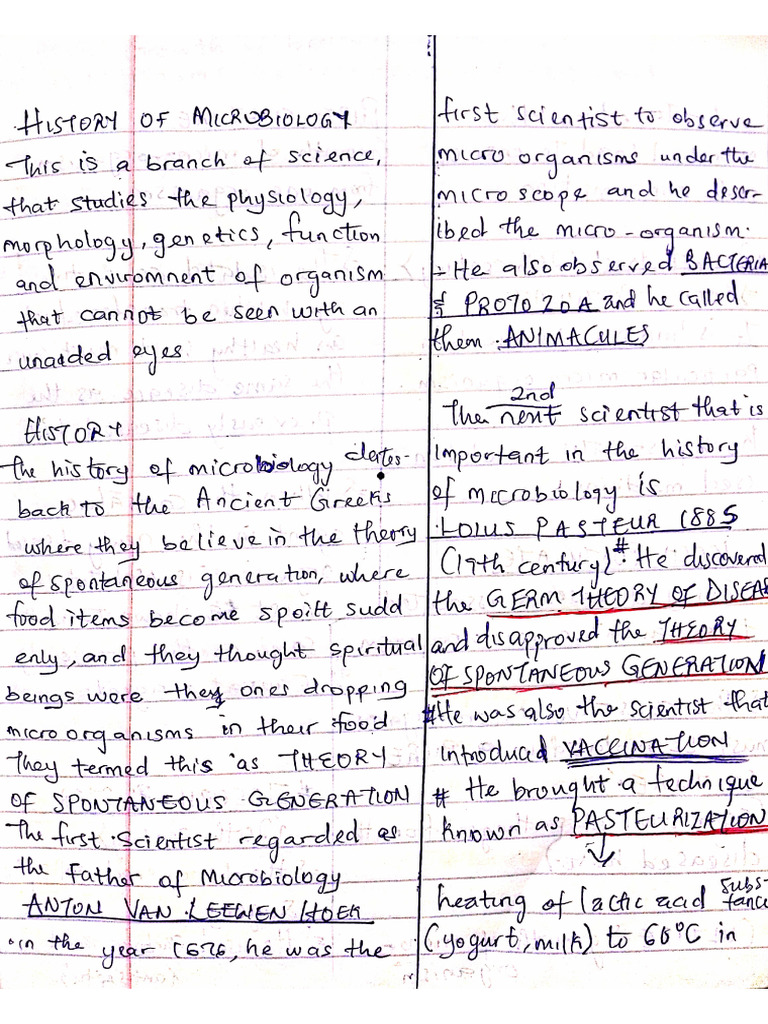 HISTORY OF MICROBIOLOGY
This is a branch of science,
that studies the physiology,
morphology, genetics, function
and enviromnent of organism
that cannot be seen with an
unaided eyes
HISTORY
The history of microbiology dates-
back to the Ancient Greeks
where they believe in the theory
of spontaneous generation, where
food items become spoilt sudd
enly, and they thought spiritual
beings were they ones dropping
micro organisms in their food
They termed this as THEORY
OF SPONTANEOUS GENERATION
The first Scientist regarded as
the Father of Microbiology
ANTON VAN LEEWEN HOEK
in the year 1676, he was the
first scientist to observe
micro organisms under the
microscope and he descr-
ibed the micro-organism.
- He also observed BACTERIA
& PROTOZOA and he called
them ANIMACULES
2nd
The next scientist that is
important in the history
of microbiology is
LOIUS PASTEUR 1885
(19th century) # He discovered
the GERM THEORY OF DISEAS
and disapproved the THEORY
OF SPONTANEOUS GENERATION
# He was also the scientist that
introduced VACCINATION
# He brought a technique
known as PASTEURIZATION
heating of lactic acid subs-
tance
(yogurt, milk) to 60°C in